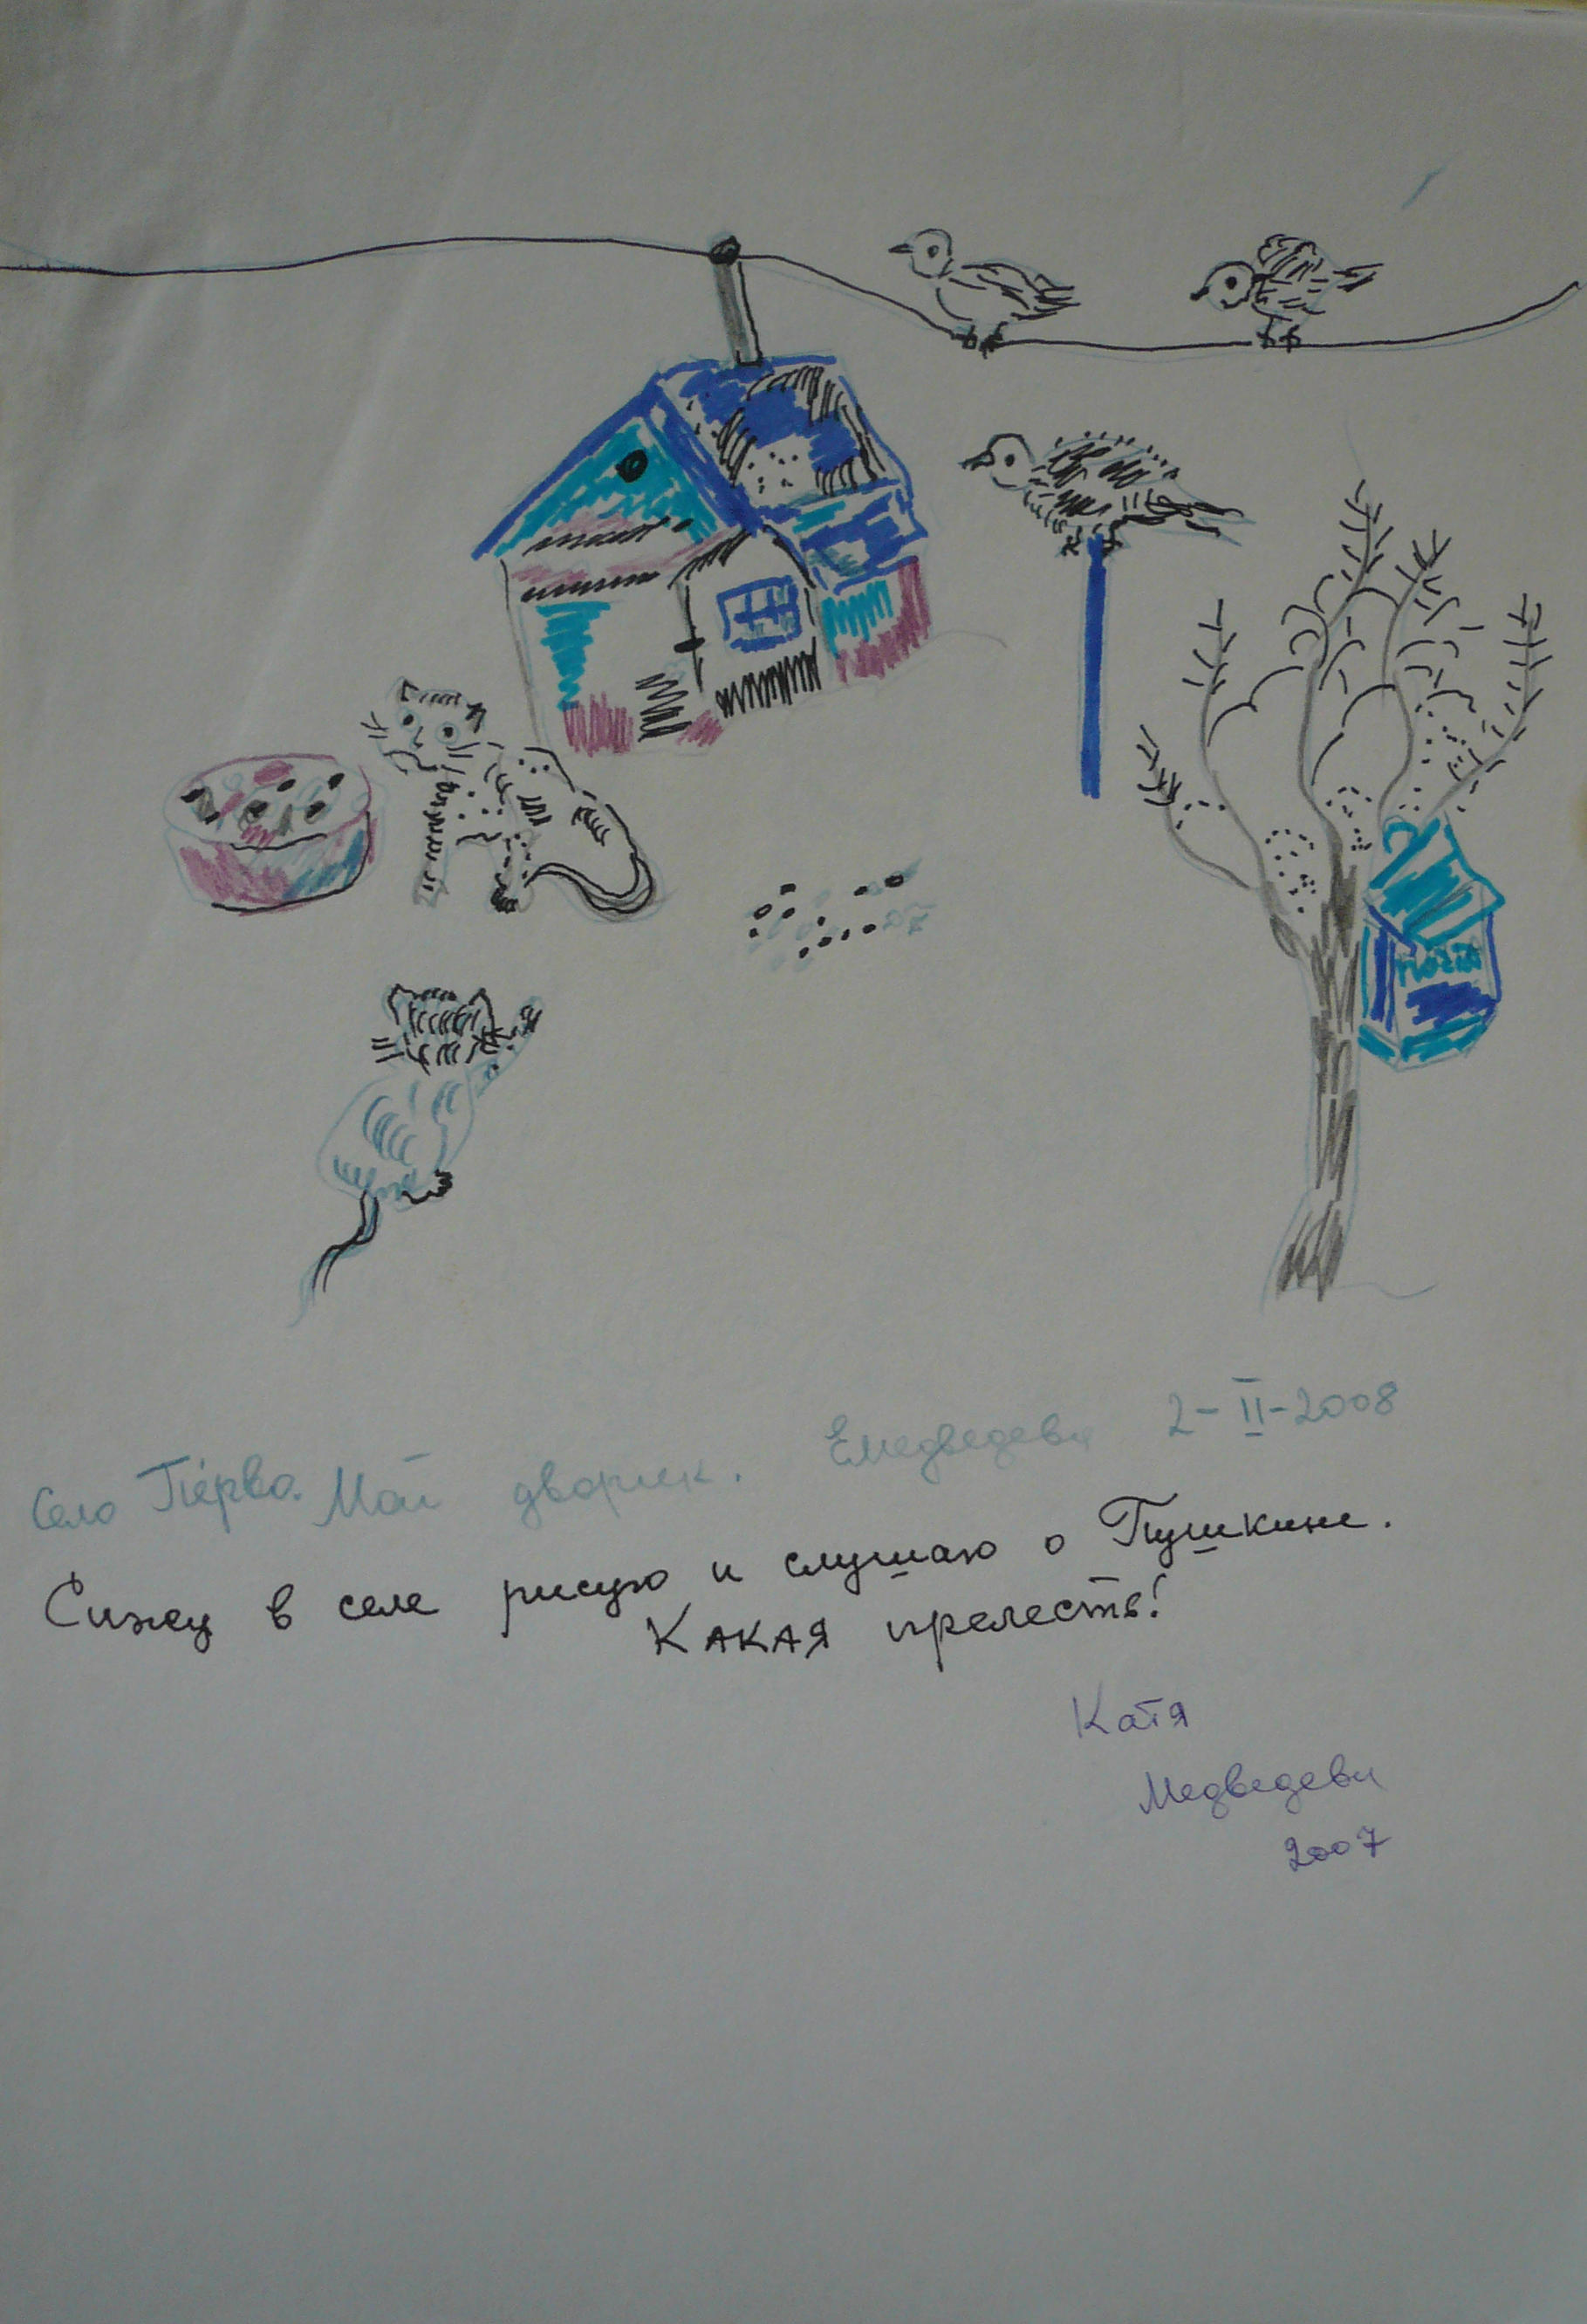 Село Пéрво. Мой дворик. ЕМедведева 2-II-2008
Сижу в селе рисую и слушаю о Пушкине.
КАКАЯ прелесть!
Катя
Медведева
2007